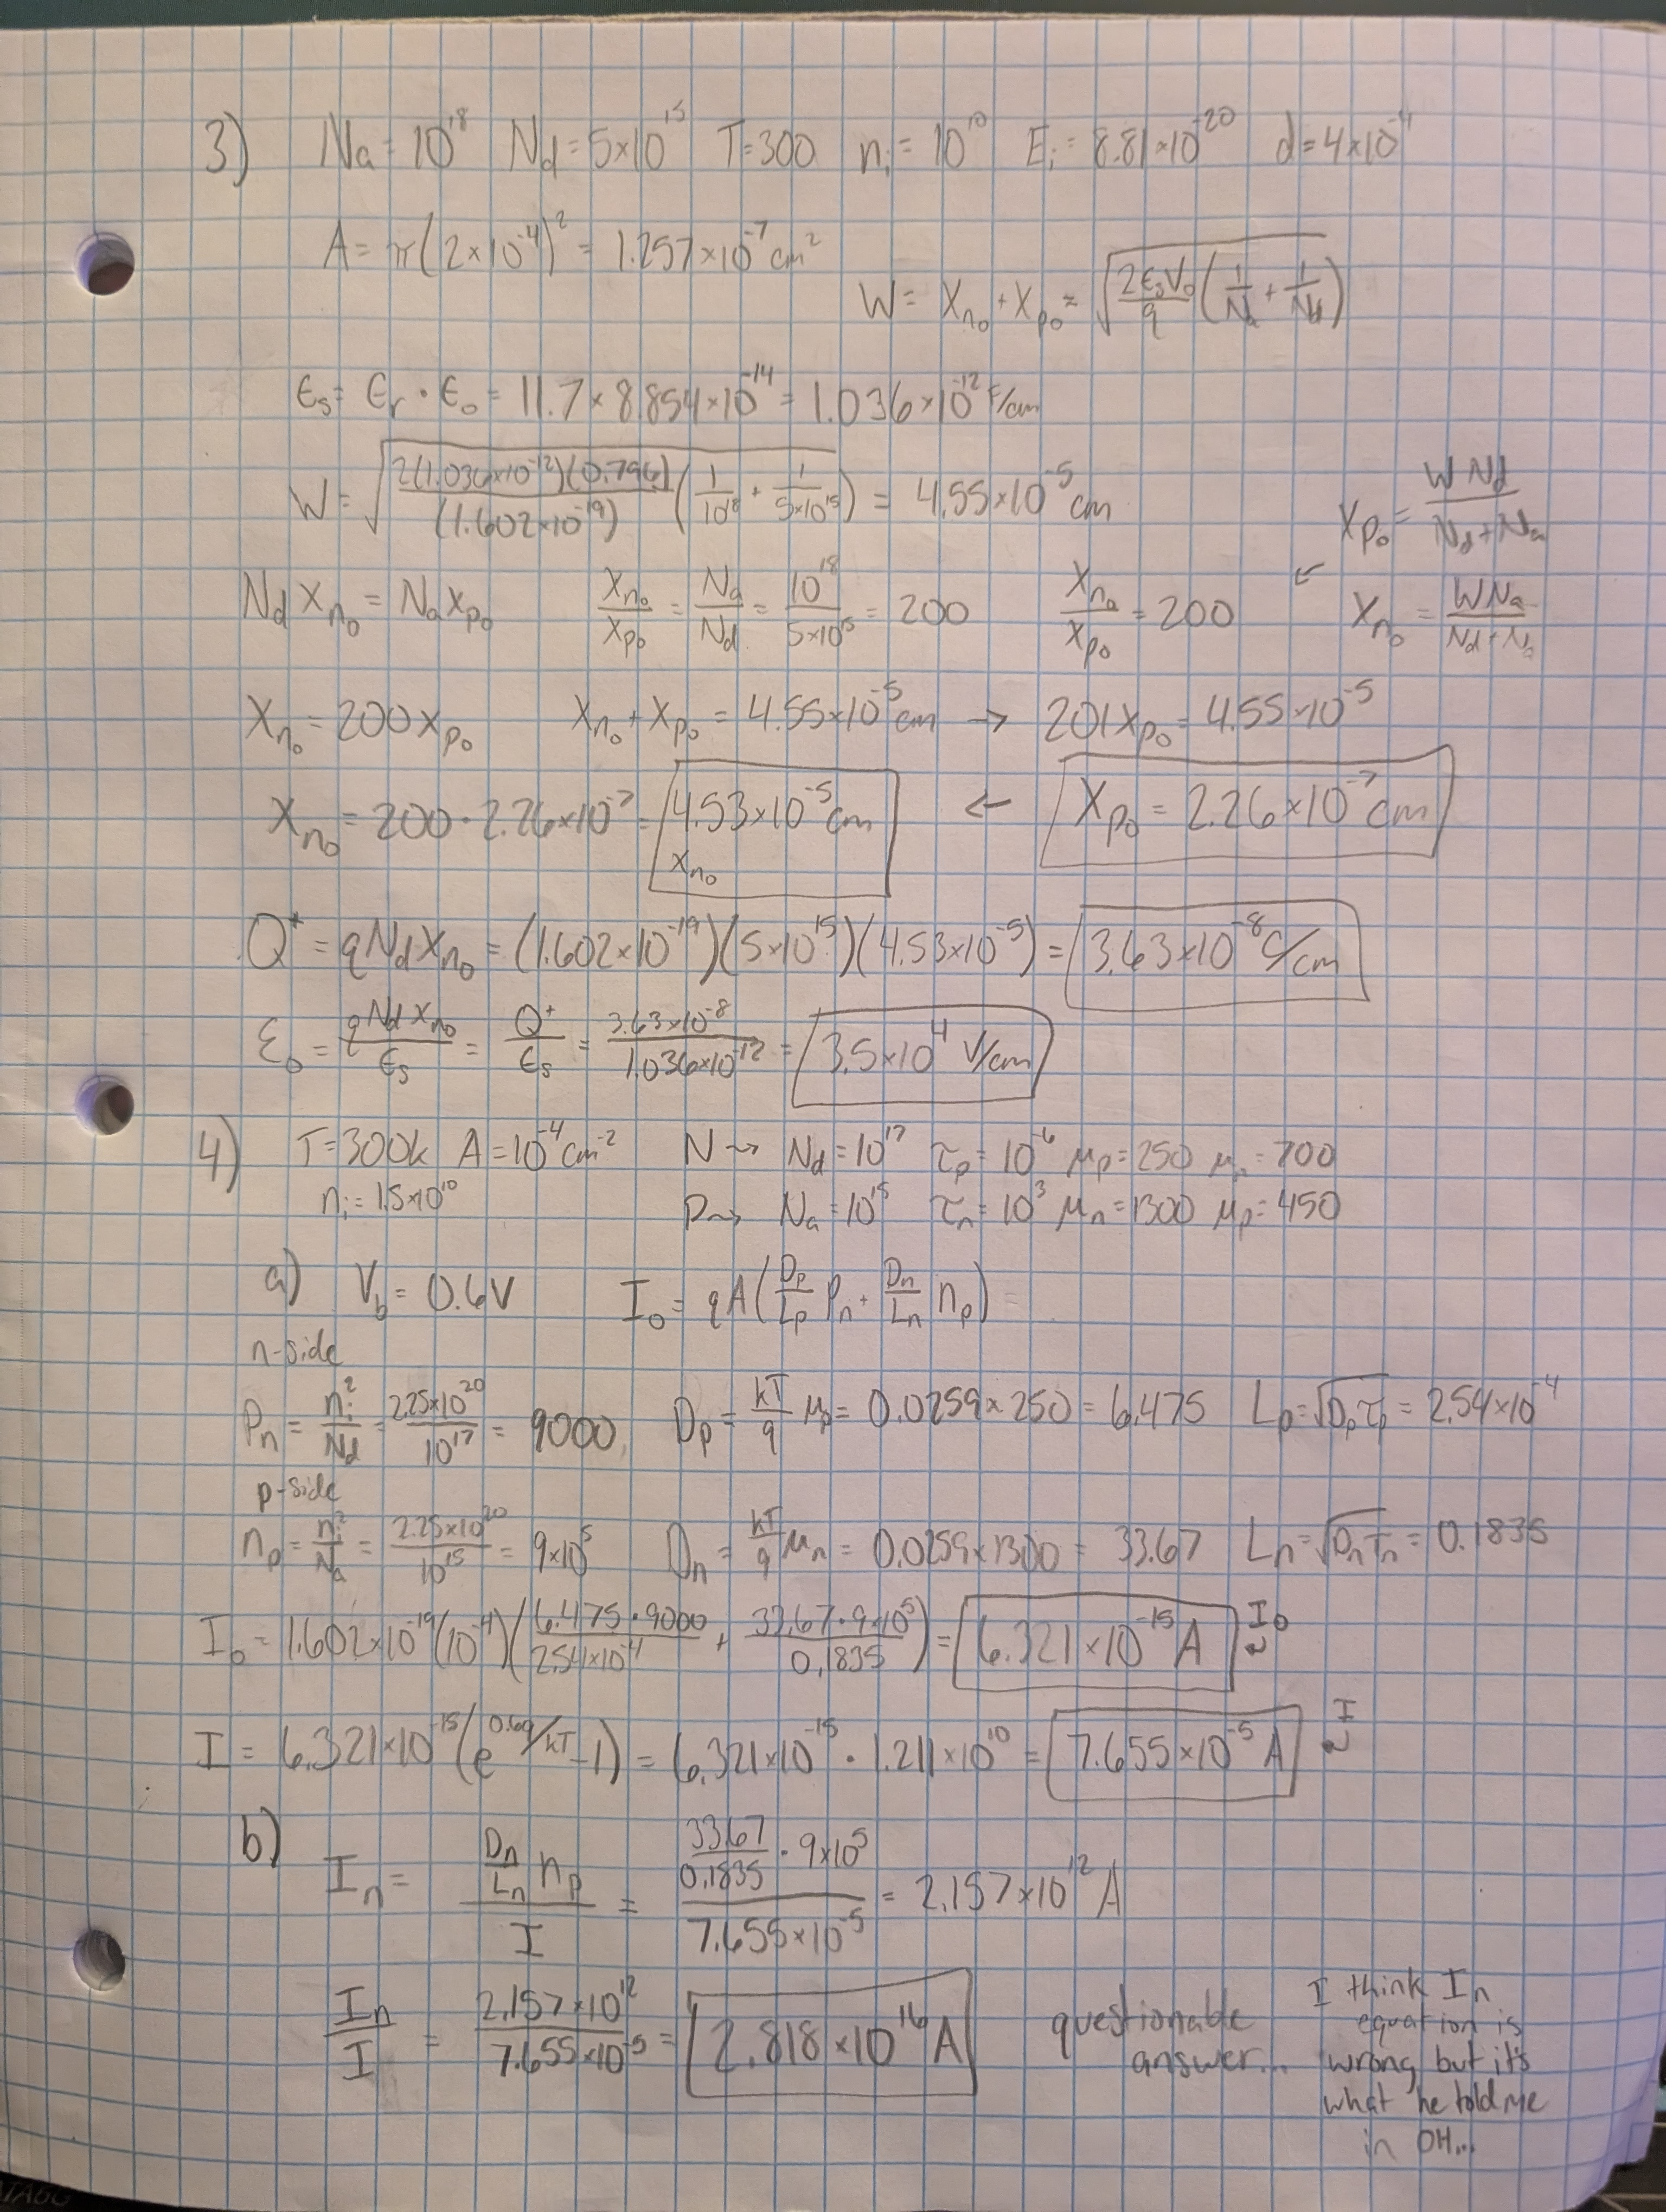 3) Na = 10^18 Nd = 5×10^15 T=300 ni = 10^10 Ei = 8.81×10^-20 d = 4×10^-4
A = π(2×10^-4)^2 = 1.257×10^-7 cm^2
W = Xn0 + Xp0 = √(2ЄsV0/q (1/Na + 1/Nd))
Єs = Єr · Є0 = 11.7 × 8.854×10^-14 = 1.036×10^-12 F/cm
W = √(2(1.036×10^-12)(0.796)/(1.602×10^-19) (1/10^18 + 1/5×10^15)) = 4.55×10^-5 cm Xp0 = WNd/(Nd+Na)
Nd Xn0 = Na Xp0 Xn0/Xp0 = Na/Nd = 10^18/5×10^15 = 200 Xn0/Xp0 = 200 ← Xn0 = WNa/(Nd+Na)
Xn0 = 200 Xp0 Xn0 + Xp0 = 4.55×10^-5 cm → 201 Xp0 = 4.55×10^-5
Xn0 = 200 · 2.26×10^-7 = 4.53×10^-5 cm ← Xp0 = 2.26×10^-7 cm
Xn0
Q+ = qNdXn0 = (1.602×10^-19)(5×10^15)(4.53×10^-5) = 3.63×10^-8 C/cm
Ɛ0 = qNdXn0/Єs = Q+/Єs = 3.63×10^-8/1.036×10^-12 = 3.5×10^4 V/cm
4) T=300k A=10^-4 cm^-2 N→ Nd = 10^17 τp = 10^-6 μp = 250 μn = 700
ni = 1.5×10^10 P→ Na = 10^15 τn = 10^3 μn = 1300 μp = 450
a) Vb = 0.6V I0 = qA(Dp/Lp Pn + Dn/Ln np) =
n-side
Pn = ni^2/Nd = 2.25×10^20/10^17 = 9000, Dp = kT/q μp = 0.0259×250 = 6.475 Lp = √DpTp = 2.54×10^-4
p-side
np = ni^2/Na = 2.25×10^20/10^15 = 9×10^5 Dn = kT/q μn = 0.0259×1300 = 33.67 Ln = √DnTn = 0.1835
I0 = 1.602×10^-19(10^-4)(6.475·9000/2.54×10^-4 + 33.67·9×10^5/0.1835) = 6.321×10^-15 A I0
I = 6.321×10^-15(e^0.6q/kT -1) = 6.321×10^-15 · 1.211×10^10 = 7.655×10^-5 A I
b) In = (Dn/Ln np)/I = (33.67/0.1835 · 9×10^5)/7.655×10^-5 = 2.157×10^12 A
In/I = 2.157×10^12/7.655×10^-5 = 2.818×10^16 A
questionable
answer...
I think In
equation is
wrong but it's
what he told me
in OH...